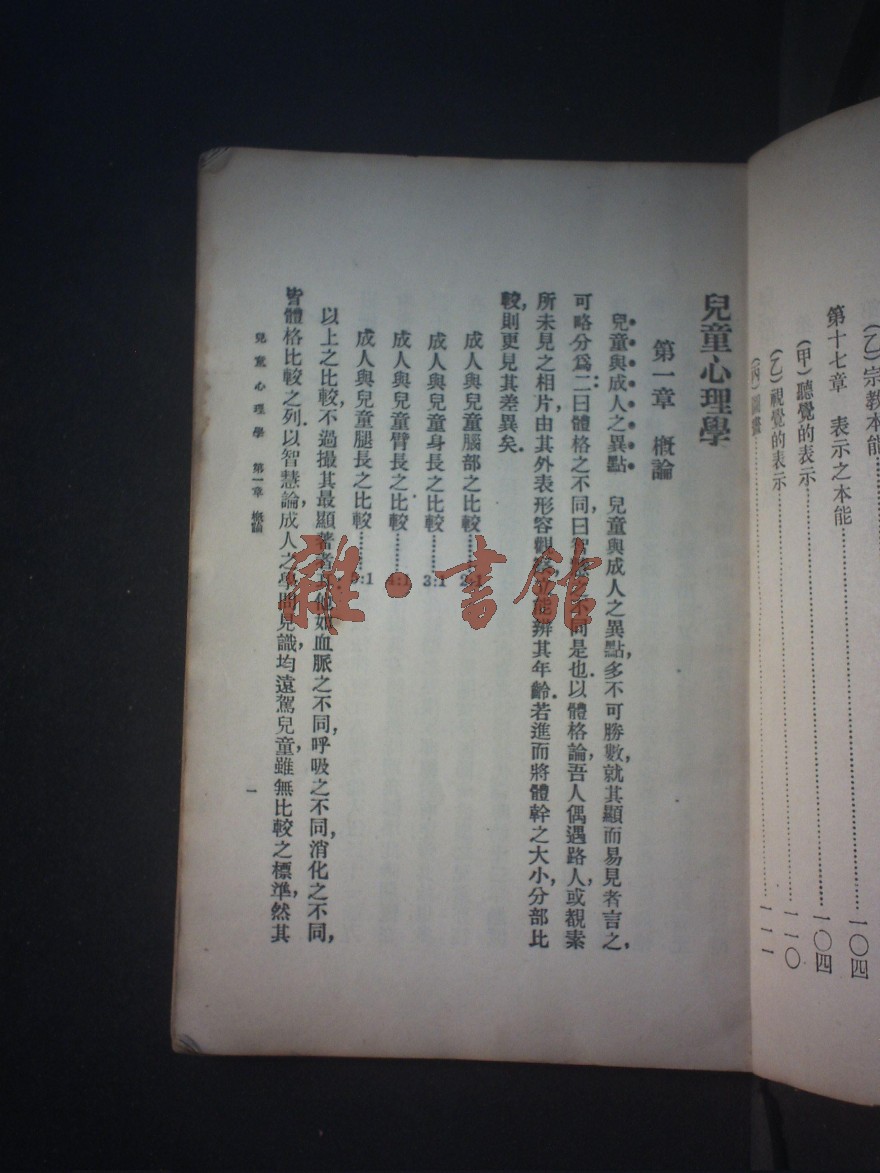 (乙)宗教本能 一〇四
第十七章 表示之本能 一〇四
(甲)聽覺的表示 一一〇
(乙)視覺的表示 一一一
(丙)圖畫
兒童心理學
第一章 概論
兒童與成人之異點 兒童與成人之異點,多不可勝數,就其顯而易見者言之,
可略分爲二:曰體格之不同,曰智慧之不同是也.以體格論,吾人偶遇路人,或覩素
所未見之相片,由其外表形容觀察,並能辨其年齡.若進而將體幹之大小,分部比
較,則更見其差異矣.
成人與兒童腦部之比較……2:1
成人與兒童身長之比較……3:1
成人與兒童臂長之比較……4:1
成人與兒童腿長之比較……5:1
以上之比較,不過撮其最顯著者,其他如血脈之不同,呼吸之不同,消化之不同,
皆體格比較之列.以智慧論,成人之學問見識,均遠駕兒童,雖無比較之標準,然其
兒童心理學 第一章 概論
一
雜·書館